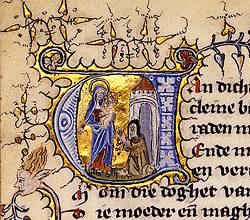 An dich
cleine b
raden n
Ende m
en ver
om die doghet var
ie moeder en mag